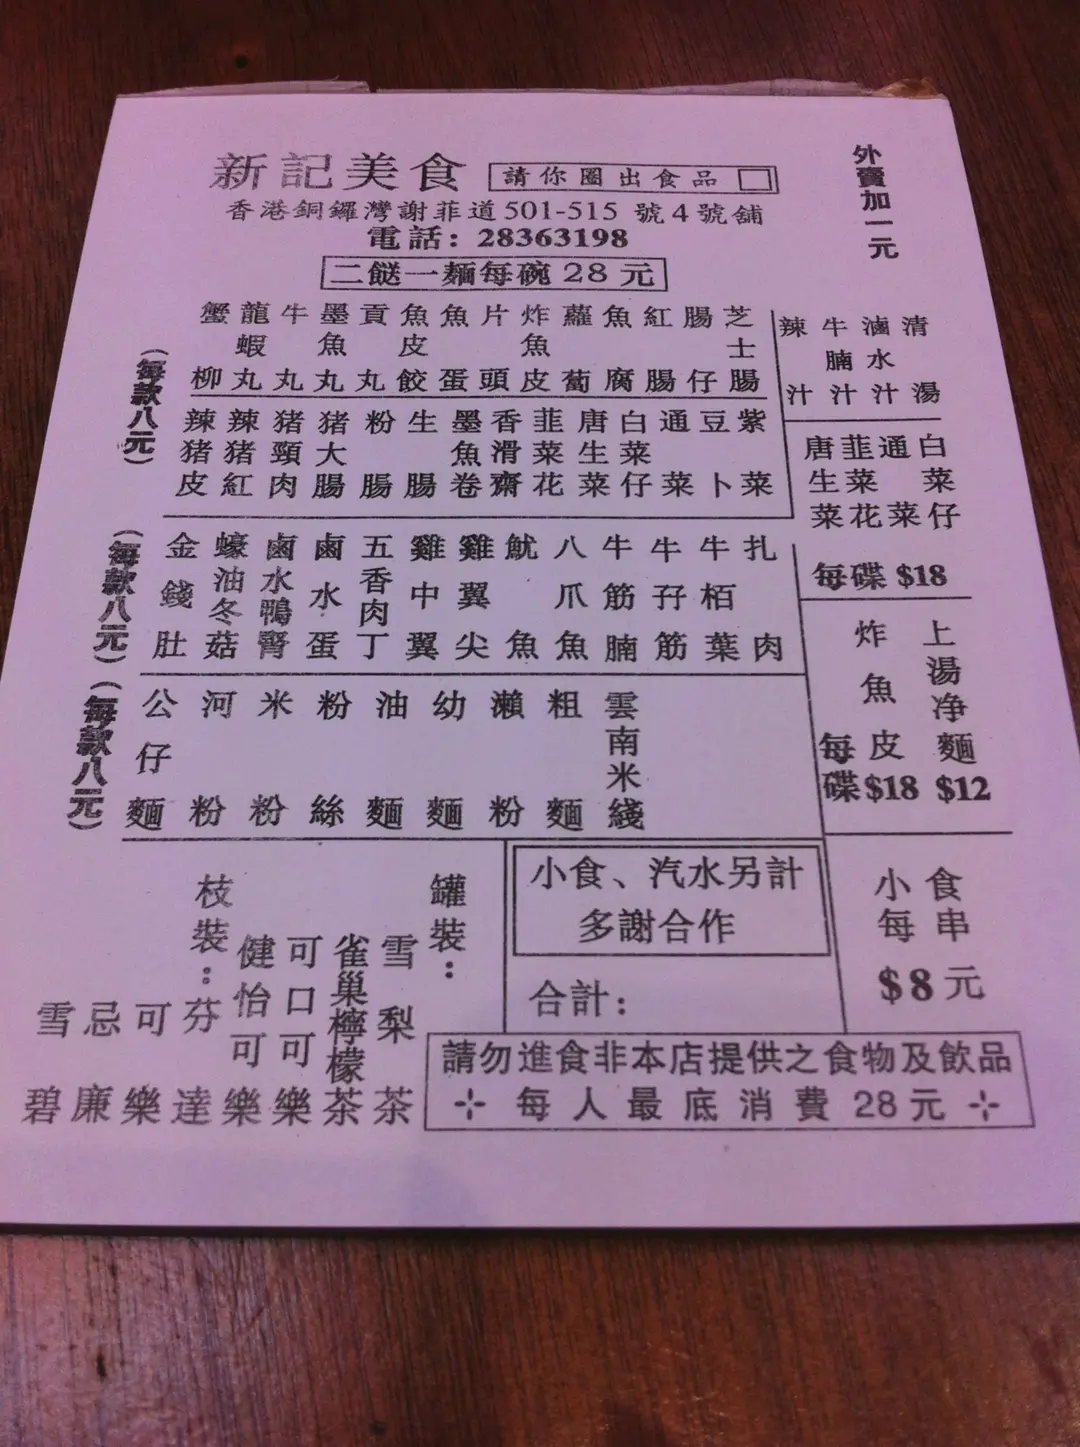 新記美食
請你圈出食品
香港銅鑼灣謝菲道501-515 號4號舖
電話: 28363198
二餸一麵每碗28元
外賣加一元
(每款八元)
蟹柳
龍蝦丸
牛丸
墨魚丸
貢丸
魚皮餃
魚蛋
片頭
炸魚皮
蘿蔔
魚腐
紅腸
腸仔
芝士腸
辣猪皮
辣猪紅
猪頸肉
猪大腸
粉腸
生腸
墨魚卷
香滑齋
韭菜花
唐生菜
白菜仔
通菜
豆卜
紫菜
(每款八元)
金錢肚
蠔油冬菇
鹵水鴨腎
鹵水蛋
五香肉丁
雞中翼
雞翼尖
魷魚
八爪魚
牛筋腩
牛孖筋
牛栢葉
扎肉
(每款八元)
公仔麵
河粉
米粉
粉絲
油麵
幼麵
瀨粉
粗麵
雲南米綫
辣汁
牛腩汁
滷水汁
清湯
唐生菜
韭菜花
通菜
白菜仔
每碟 $18
炸魚皮
每碟$18
上湯净麵
$12
小食每串
$8元
小食、汽水另計
多謝合作
合計:
罐裝:
雪梨茶
雀巢檸檬茶
可口可樂
健怡可樂
枝裝:
芬達
可樂
忌廉
雪碧
請勿進食非本店提供之食物及飲品
每人最底消費28元